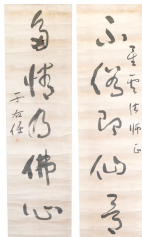 不俗即仙骨
星雲法師正
多情乃佛心
于右任